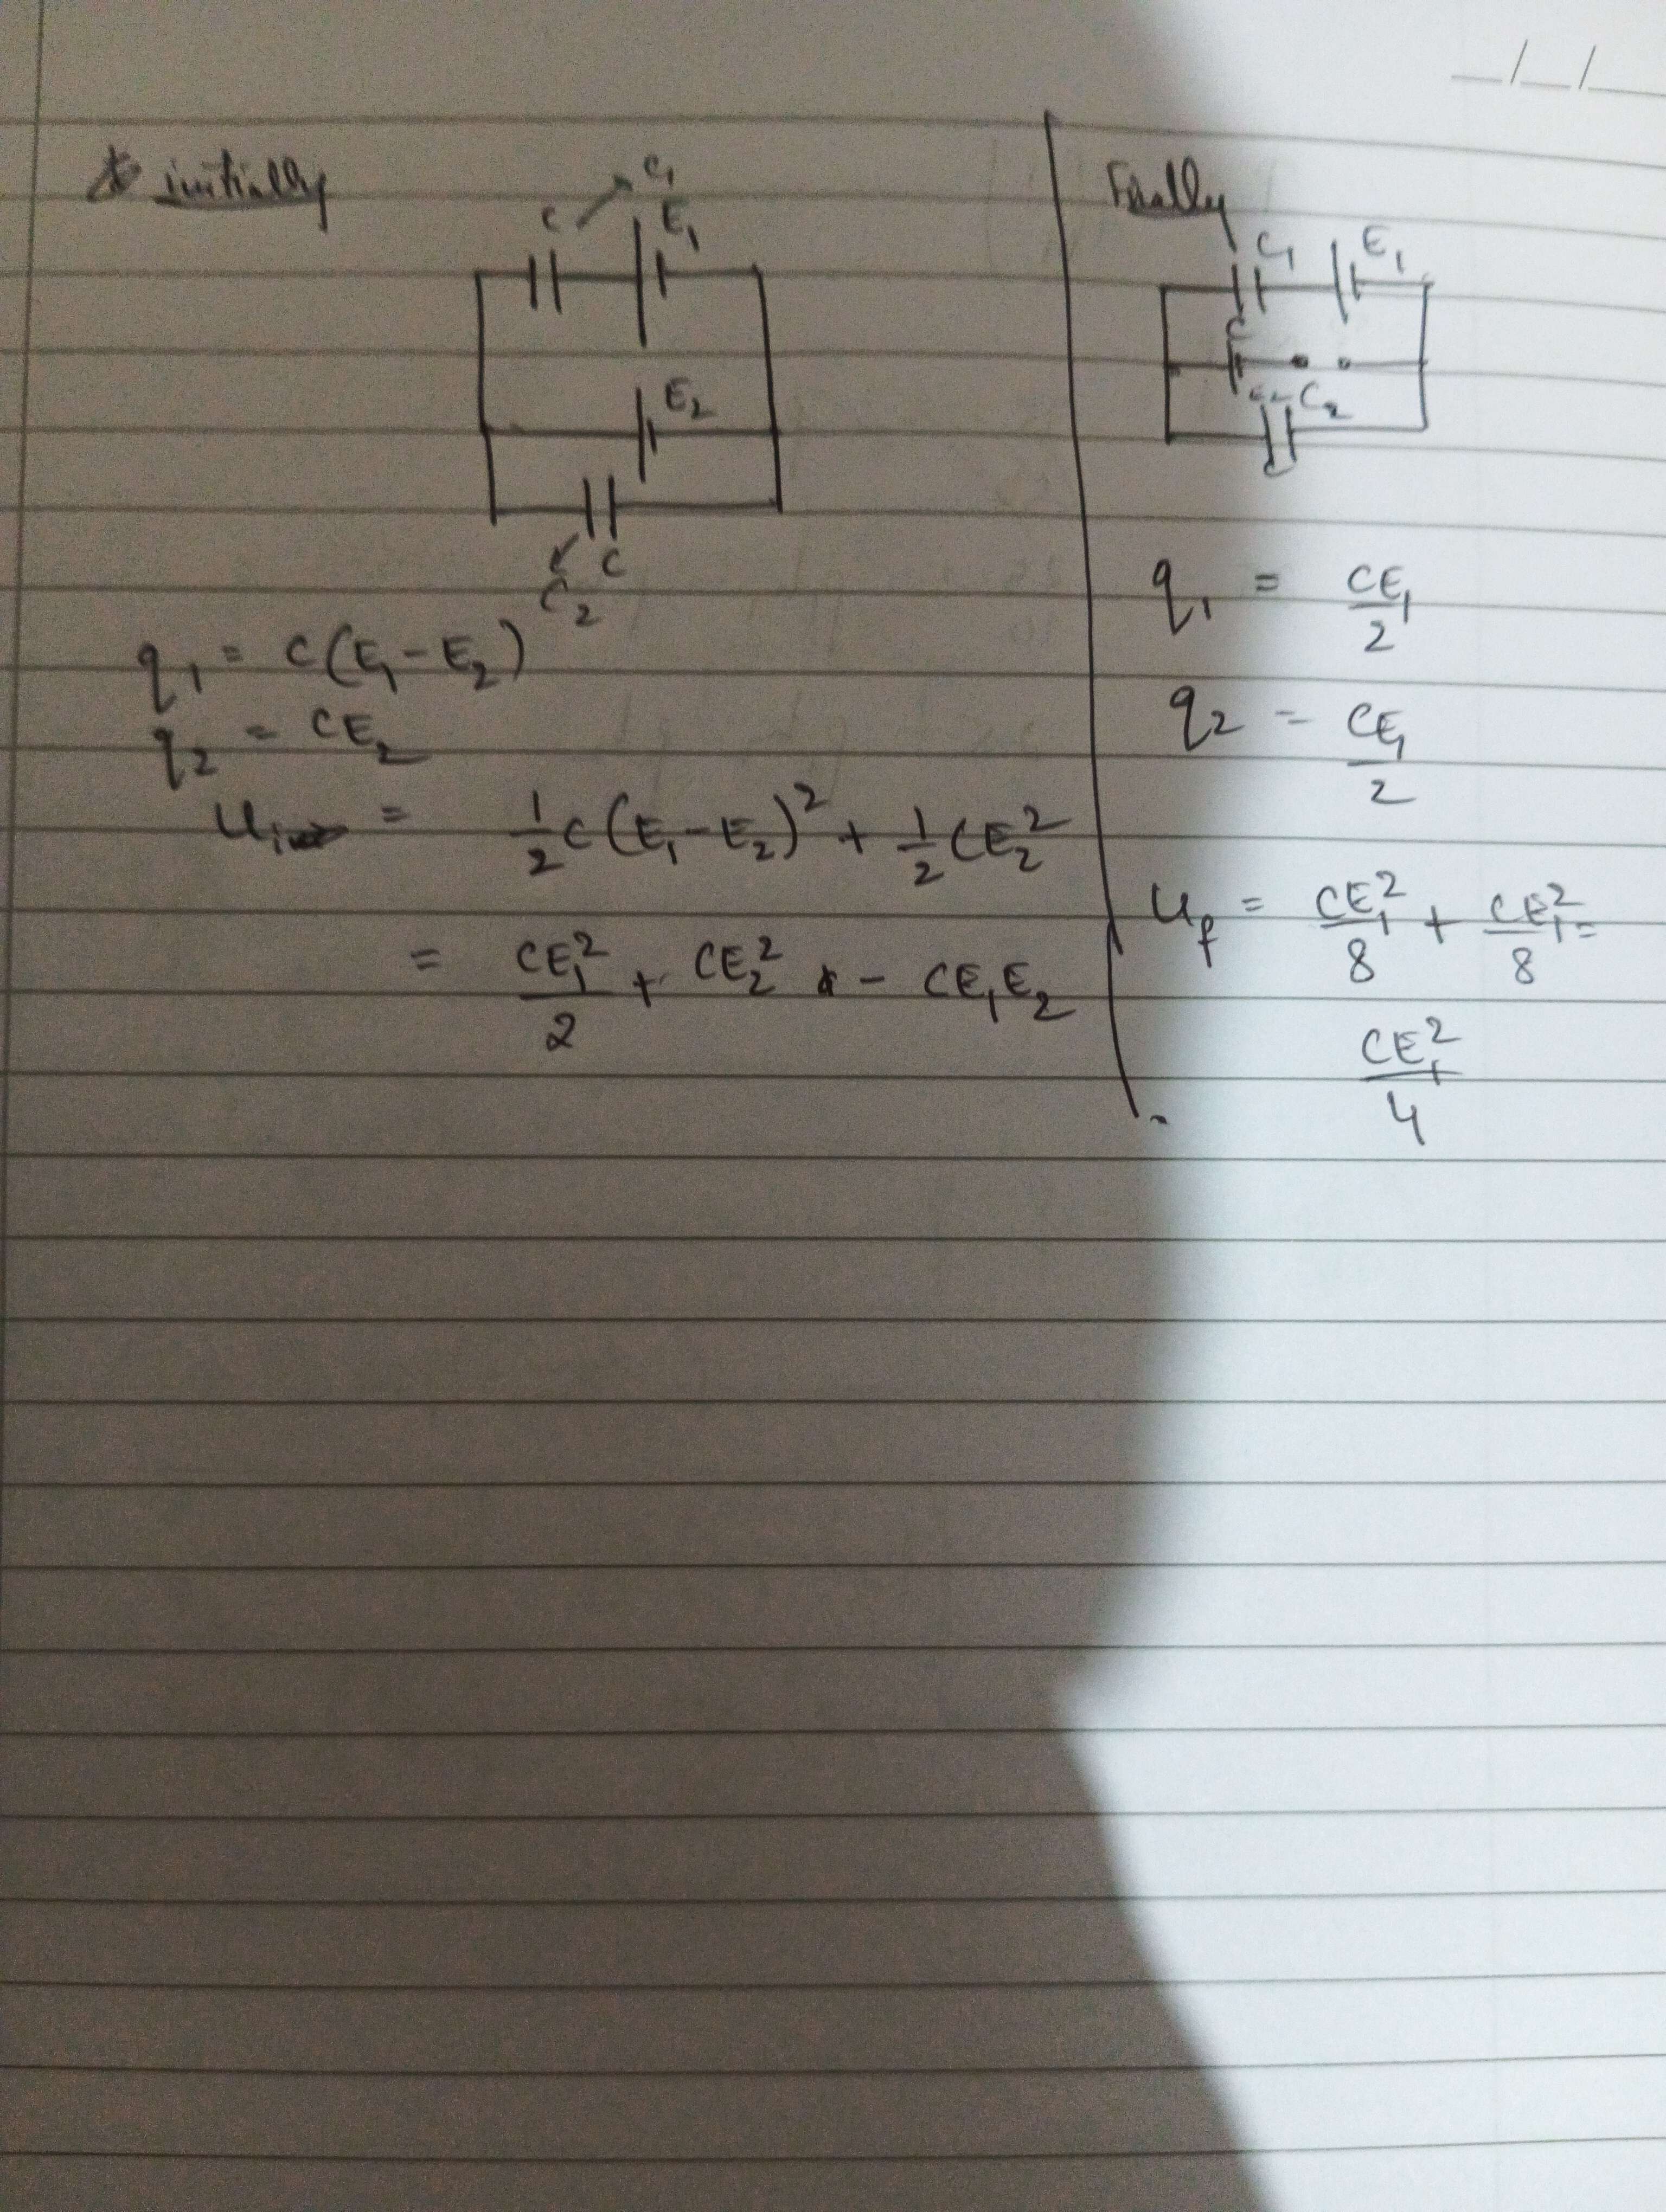 __/__/__
initially
C₁
C
E₁
E₂
C
C₂
q₁ = C(E₁-E₂)
q₂ = CE₂
Uᵢ = 1/2 C(E₁-E₂)² + 1/2 CE₂²
= CE₁²/2 + CE₂² - CE₁E₂
Finally
C₁ E₁
C
C₂
C
q₁ = CE₁/2
q₂ = CE₁/2
U_f = CE₁²/8 + CE₁²/8 =
CE₁²/4